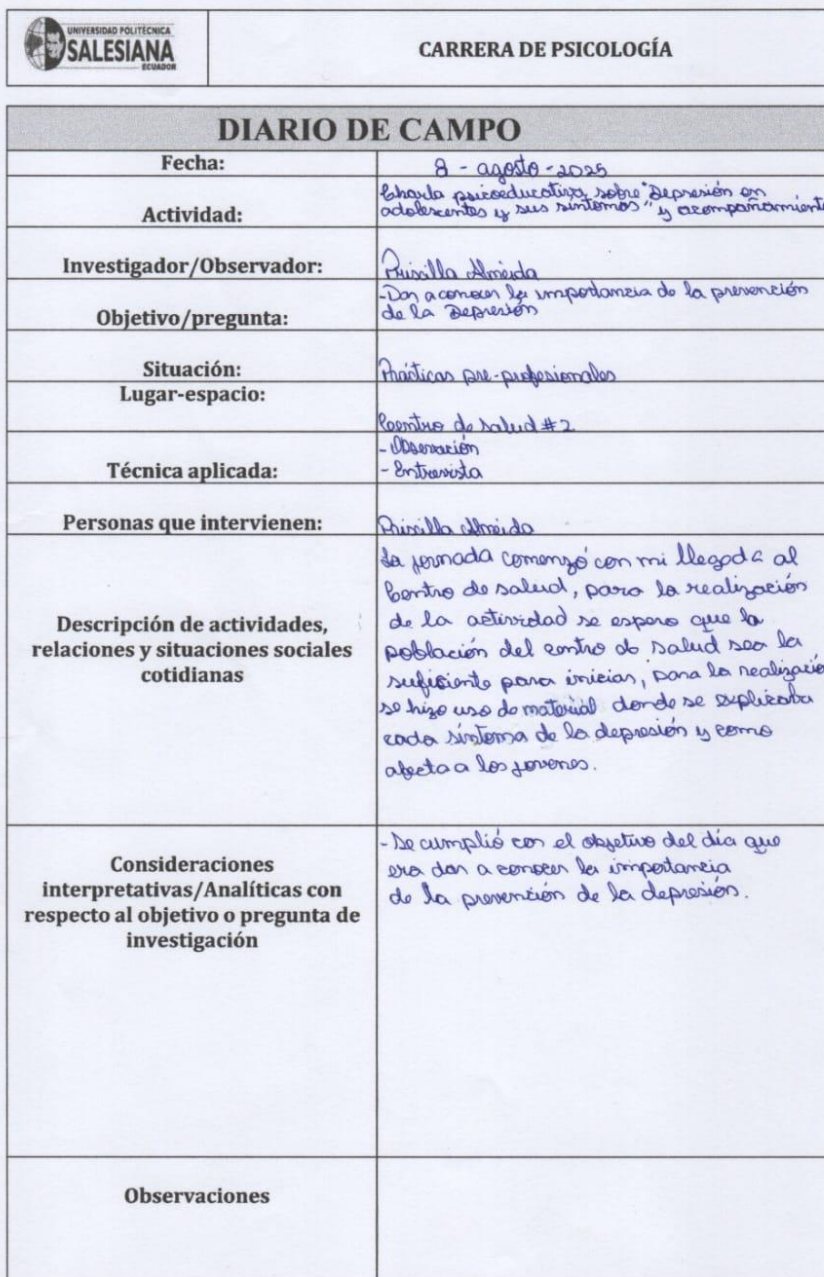 UNIVERSIDAD POLITÉCNICA
SALESIANA
ECUADOR
CARRERA DE PSICOLOGÍA
DIARIO DE CAMPO
Fecha:
8 - agosto - 2025
Actividad:
Charla psicoeducativa sobre "Depresión en
adolescentes y sus síntomas" y acompañamiento
Investigador/Observador:
Priscilla Almeida
Objetivo/pregunta:
- Dar a conocer la importancia de la prevención
de la Depresión
Situación:
Prácticas pre-profesionales
Lugar-espacio:
Centro de salud #2
Técnica aplicada:
- Observación
- Entrevista
Personas que intervienen:
Priscilla Almeida
Descripción de actividades,
relaciones y situaciones sociales
cotidianas
La jornada comenzó con mi llegada al
Centro de salud, para la realización
de la actividad se espero que la
población del centro de salud sea la
suficiente para iniciar, para la realización
se hizo uso de material donde se explicaba
cada síntoma de la depresión y como
afecta a los jovenes.
Consideraciones
interpretativas/Analíticas con
respecto al objetivo o pregunta de
investigación
- Se cumplió con el objetivo del día que
era dar a conocer la importancia
de la prevención de la depresión.
Observaciones